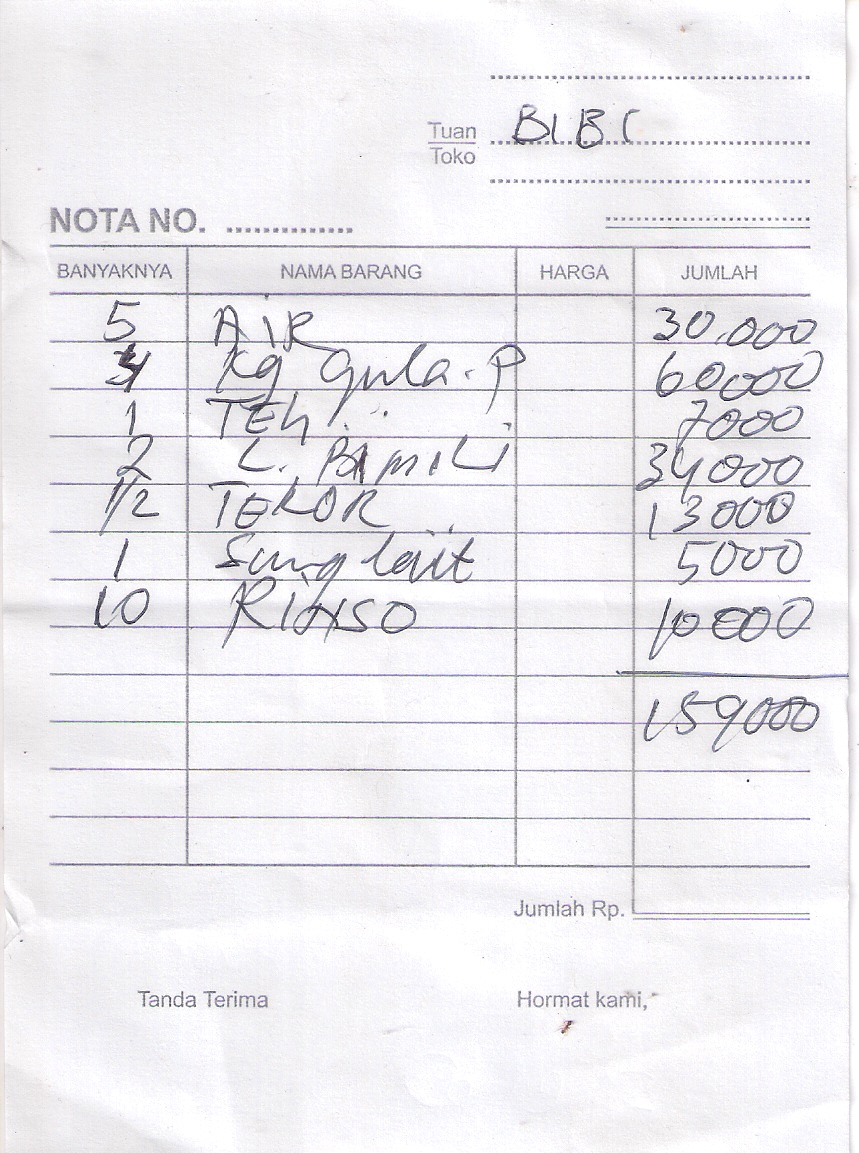 Tuan BIBI
Toko
NOTA NO. ..............
BANYAKNYA NAMA BARANG HARGA JUMLAH
5 AIR 30.000
kg gula. P 60000
1 TEH 7000
2 L. BIMILI 34000
1/2 TELOR 13000
1 Sunglait 5000
10 RINSO 10000
159000
Jumlah Rp.
Tanda Terima Hormat kami,